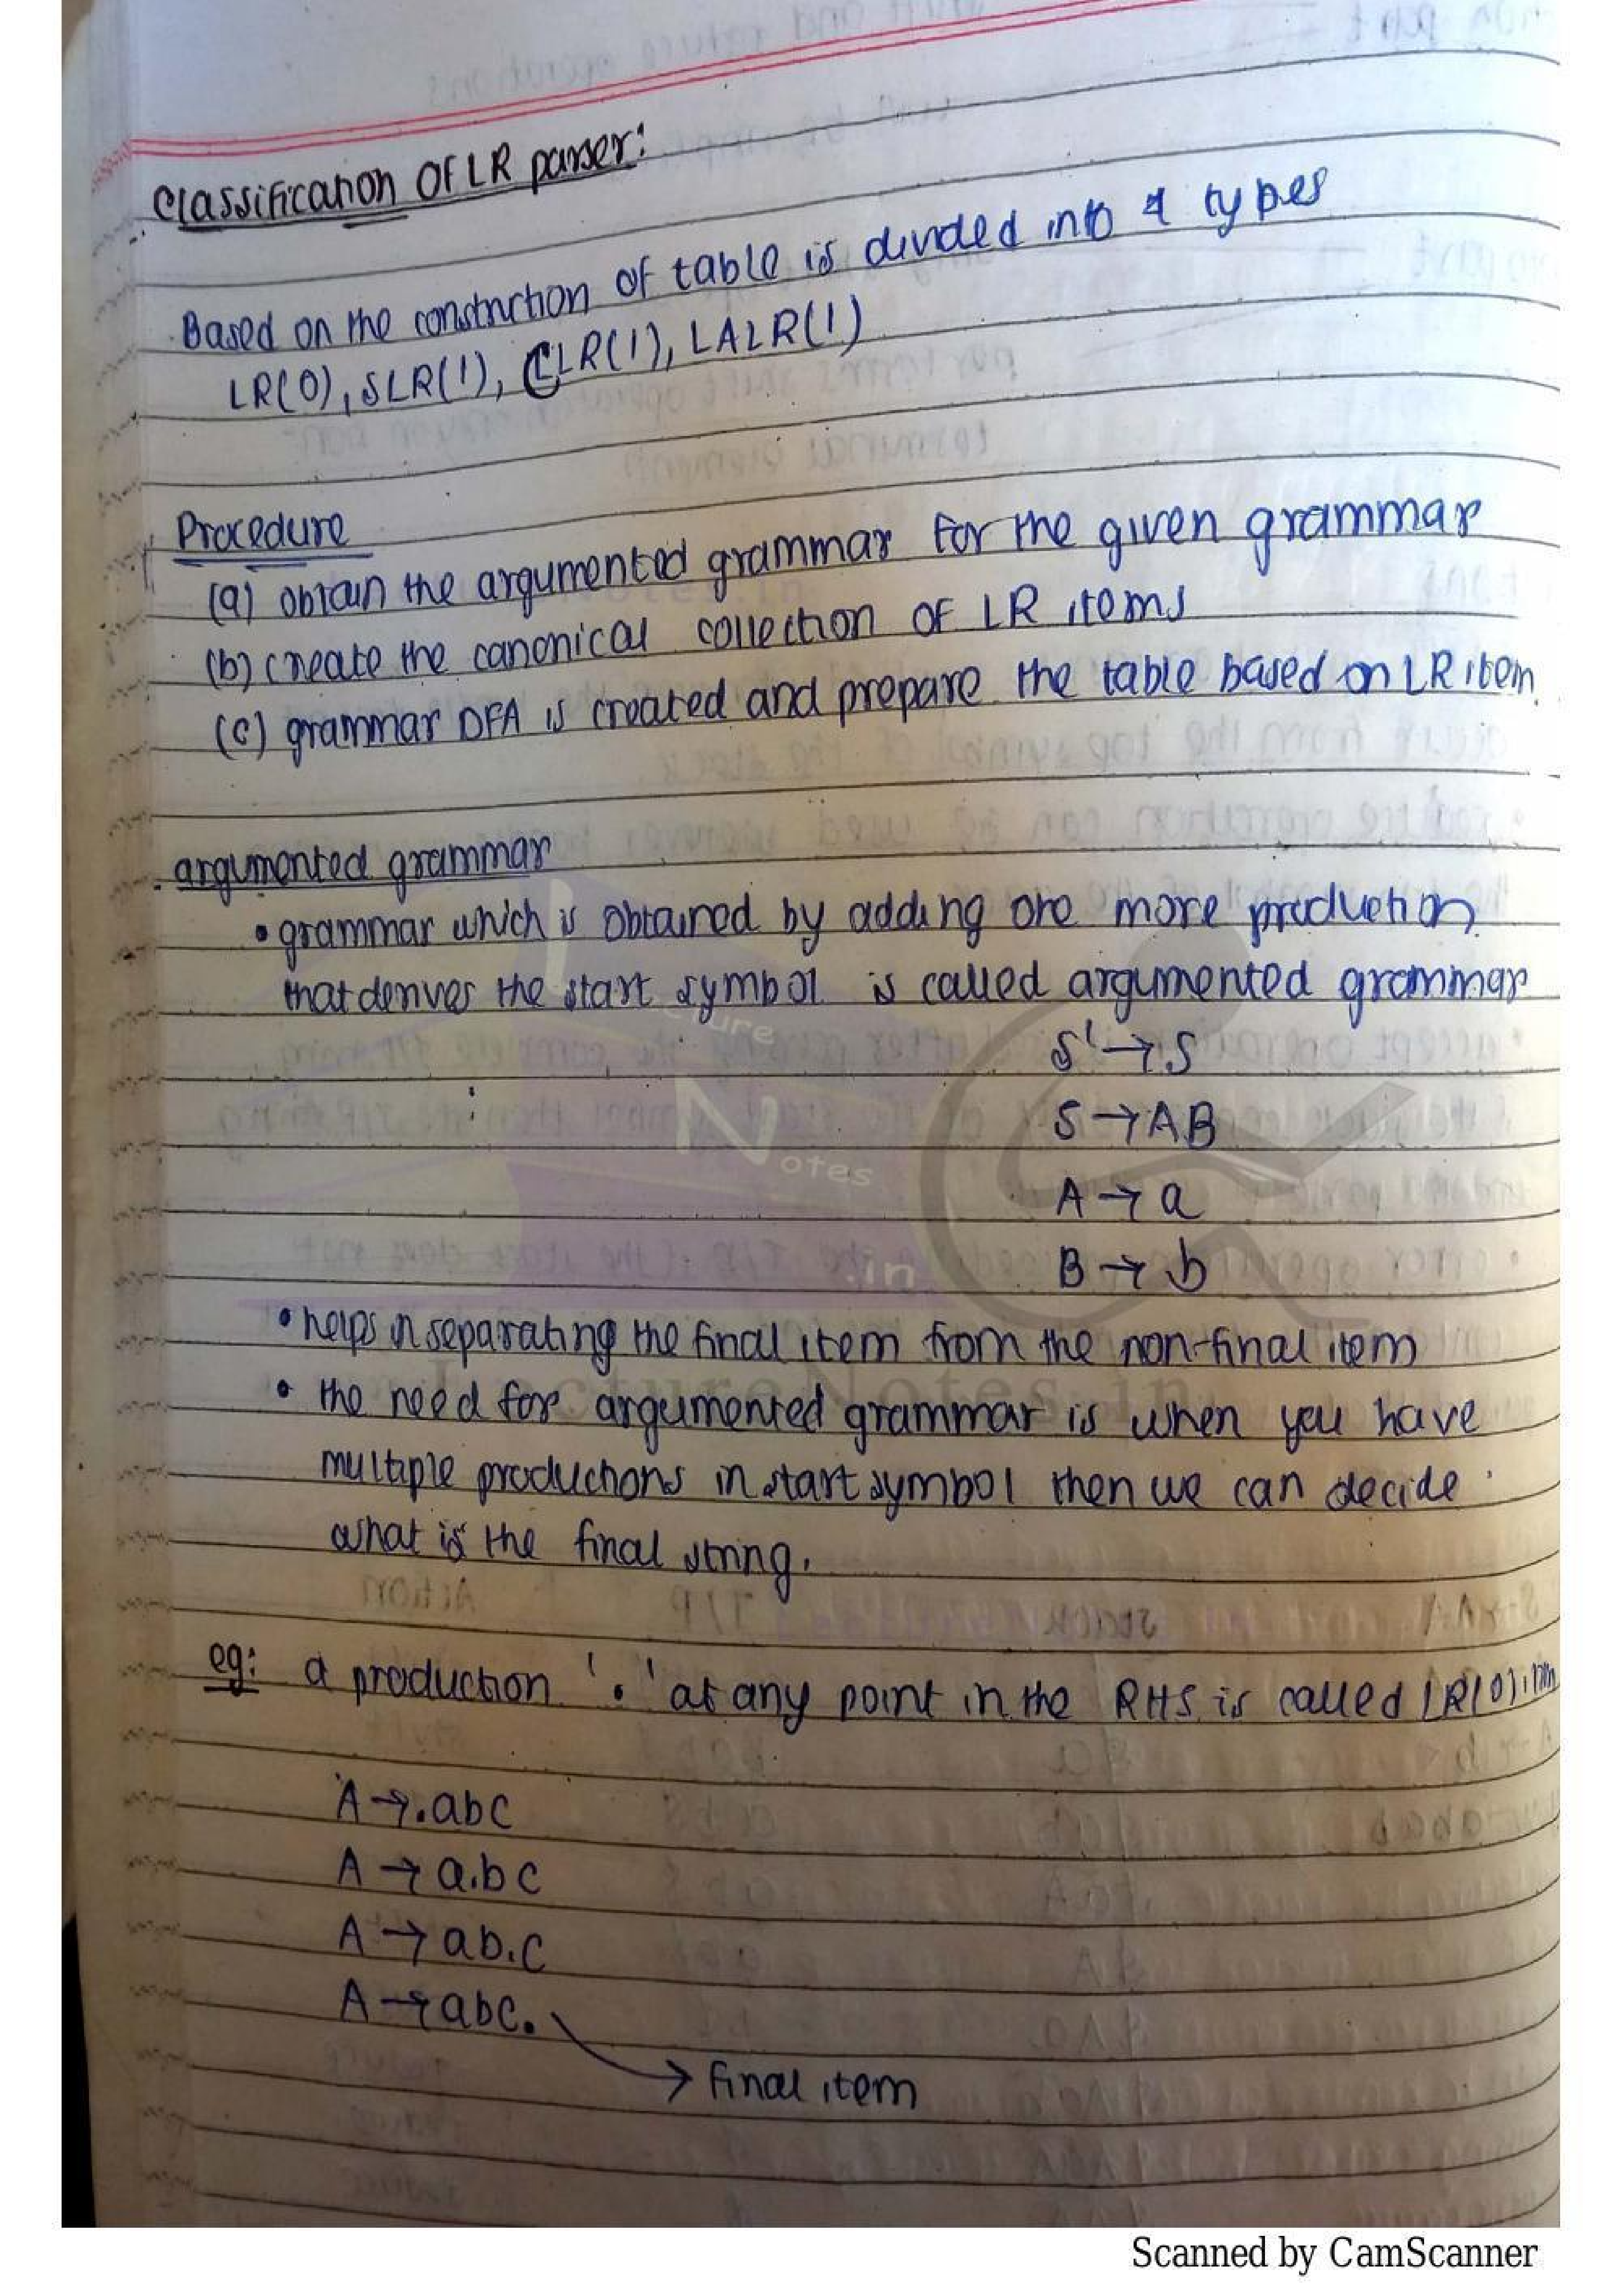 Classification OF LR parser:
Based on the construction of table is divided into 4 types
LR(0), SLR(1), CLR(1), LALR(1)
Procedure
(a) obtain the argumented grammar for the given grammar
(b) create the canonical collection of LR items
(c) grammar DFA is created and prepare the table based on LR item.
argumented grammar
• grammar which is obtained by adding one more production
that derives the start symbol is called argumented grammar
S' → S
S → AB
A → a
B → b
• helps in separating the final item from the non-final item
• the need for argumented grammar is when you have
multiple productions in start symbol then we can decide
what is the final string.
eg: a production '.' at any point in the RHS is called LR(0) item
A → .abc
A → a.bc
A → ab.c
A → abc.
→ final item
Lecture
Notes
.in
LectureNotes.in
Scanned by CamScanner